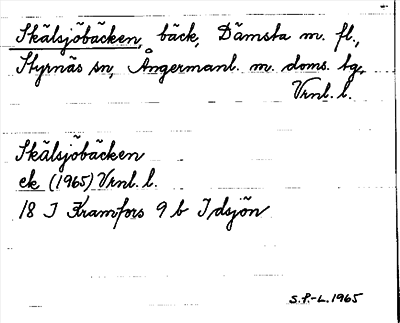 Skälsjöbäcken, bäck, Dämsta m. fl.,
Styrnäs sn, Ångermanl. m. doms. tg,
Vrnl. l.
Skälsjöbäcken
ek (1965) Vrnl. l.
18 I Kramfors 9 b Idsjön
S.P.-L. 1965